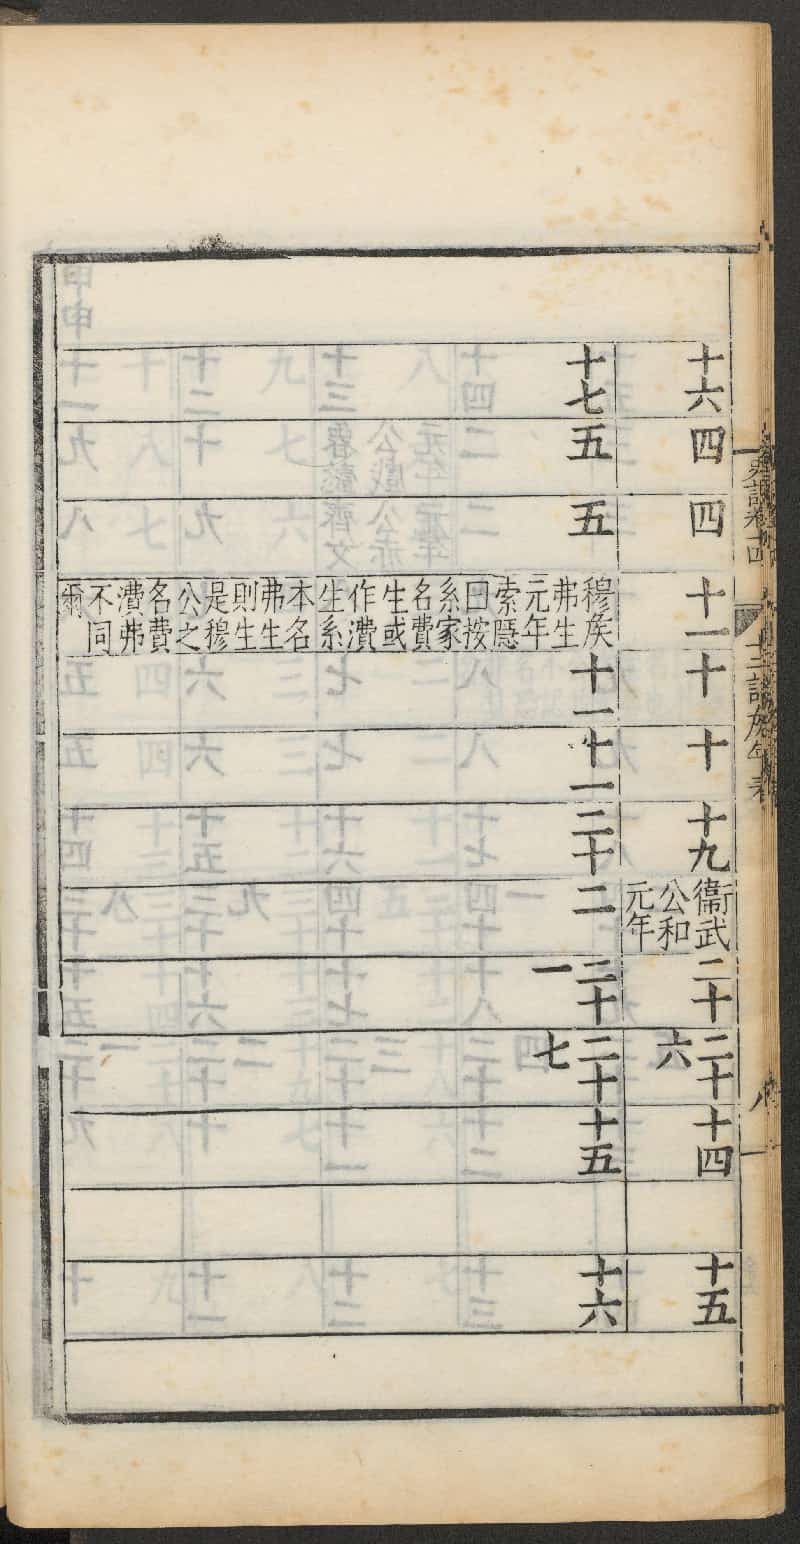 史記卷十四
十二諸侯年表
八
十六
四
四
十一
十
十
十九
衞武
公和
元年
二十
二十
六
十四
十五
十七
五
五
穆矦
弗生
元年
索隱
曰按
系家
名費
生或
作潰
生系
本名
弗生
則生
是穆
公之
名費
潰弗
不同
爾
十一
十一
二十
二
二十
一
二十
七
十五
十六